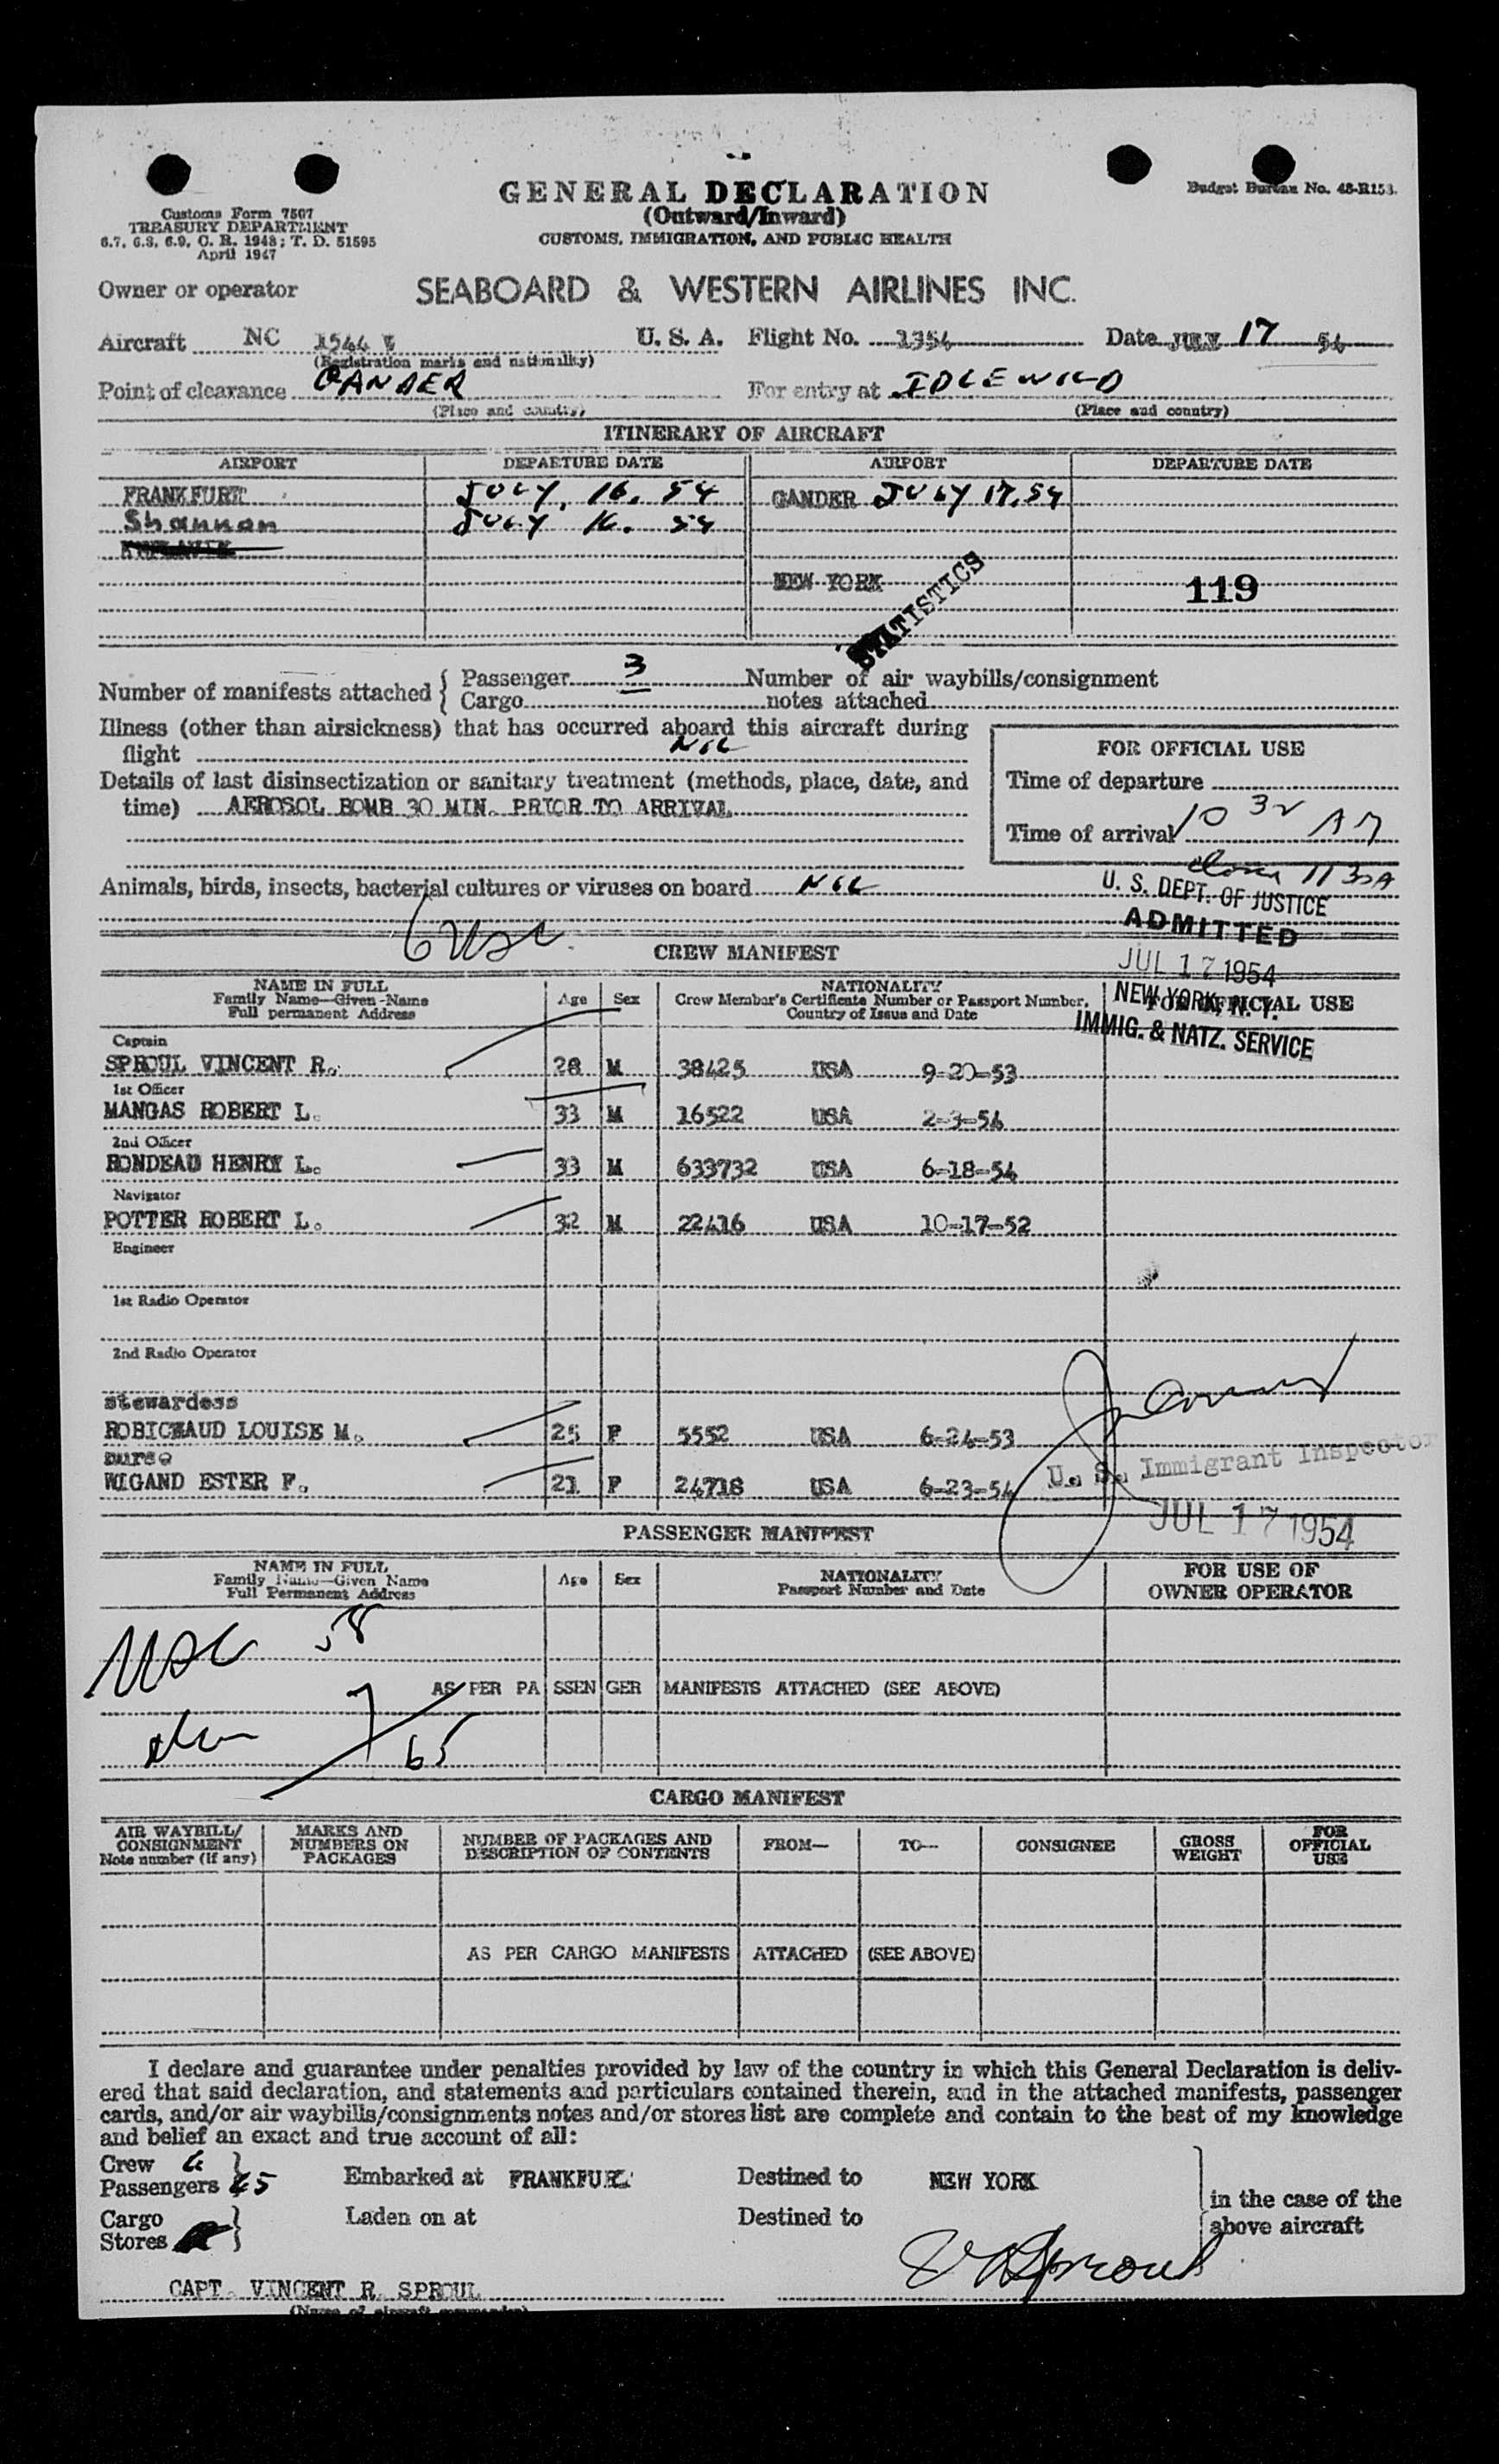 GENERAL DECLARATION
(Outward/Inward)
CUSTOMS, IMMIGRATION, AND PUBLIC HEALTH
Budget Bureau No. 48-R153.
Customs Form 7507
TREASURY DEPARTMENT
6.7, 6.8, 6.9, C. R. 1948; T. D. 51595
April 1947
Owner or operator SEABOARD & WESTERN AIRLINES INC.
Aircraft NC 1544 V U. S. A. Flight No. 1354 Date JULY 17 54
(Registration marks and nationality)
Point of clearance GANDER For entry at IDLEWILD
(Place and country) (Place and country)
ITINERARY OF AIRCRAFT
AIRPORT DEPARTURE DATE AIRPORT DEPARTURE DATE
FRANKFURT JULY. 16. 54 GANDER JULY 17.54
Shannon JULY 16. 54
NEW YORK 119
STATISTICS
Number of manifests attached { Passenger 3 Number of air waybills/consignment
Cargo notes attached
Illness (other than airsickness) that has occurred aboard this aircraft during
flight NIL
Details of last disinsectization or sanitary treatment (methods, place, date, and
time) AEROSOL BOMB 30 MIN. PRIOR TO ARRIVAL
FOR OFFICIAL USE
Time of departure
Time of arrival 10 32 AM
1130A
Animals, birds, insects, bacterial cultures or viruses on board NIL
U. S. DEPT. OF JUSTICE
ADMITTED
JUL 17 1954
NEW YORK, N. Y.
IMMIG. & NATZ. SERVICE
6 USC
CREW MANIFEST
NAME IN FULL
Family Name—Given Name
Full permanent Address
Age Sex
NATIONALITY
Crew Member's Certificate Number or Passport Number,
Country of Issue and Date
FOR OFFICIAL USE
Captain
SPROUL VINCENT R. 28 M 38425 USA 9-20-53
1st Officer
MANGAS ROBERT L. 33 M 16522 USA 2-3-54
2nd Officer
RONDEAU HENRY L. 33 M 633732 USA 6-18-54
Navigator
POTTER ROBERT L. 32 M 22416 USA 10-17-52
Engineer
1st Radio Operator
2nd Radio Operator
stewardess
ROBICHAUD LOUISE M. 25 F 5552 USA 6-24-53
nurse
WIGAND ESTER F. 21 F 24718 USA 6-23-54
U. S. Immigrant Inspector
JUL 17 1954
PASSENGER MANIFEST
NAME IN FULL
Family Name—Given Name
Full Permanent Address
Age Sex
NATIONALITY
Passport Number and Date
FOR USE OF
OWNER OPERATOR
USC 58
AS PER PASSENGER MANIFESTS ATTACHED (SEE ABOVE)
7
65
CARGO MANIFEST
AIR WAYBILL/
CONSIGNMENT
Note number (if any)
MARKS AND
NUMBERS ON
PACKAGES
NUMBER OF PACKAGES AND
DESCRIPTION OF CONTENTS
FROM— TO— CONSIGNEE
GROSS
WEIGHT
FOR
OFFICIAL
USE
AS PER CARGO MANIFESTS ATTACHED (SEE ABOVE)
I declare and guarantee under penalties provided by law of the country in which this General Declaration is deliv-
ered that said declaration, and statements and particulars contained therein, and in the attached manifests, passenger
cards, and/or air waybills/consignments notes and/or stores list are complete and contain to the best of my knowledge
and belief an exact and true account of all:
Crew 6
Passengers 65 Embarked at FRANKFURT Destined to NEW YORK
Cargo Laden on at Destined to
Stores
in the case of the
above aircraft
V R Sproul
CAPT. VINCENT R. SPROUL
(Name of aircraft commander)